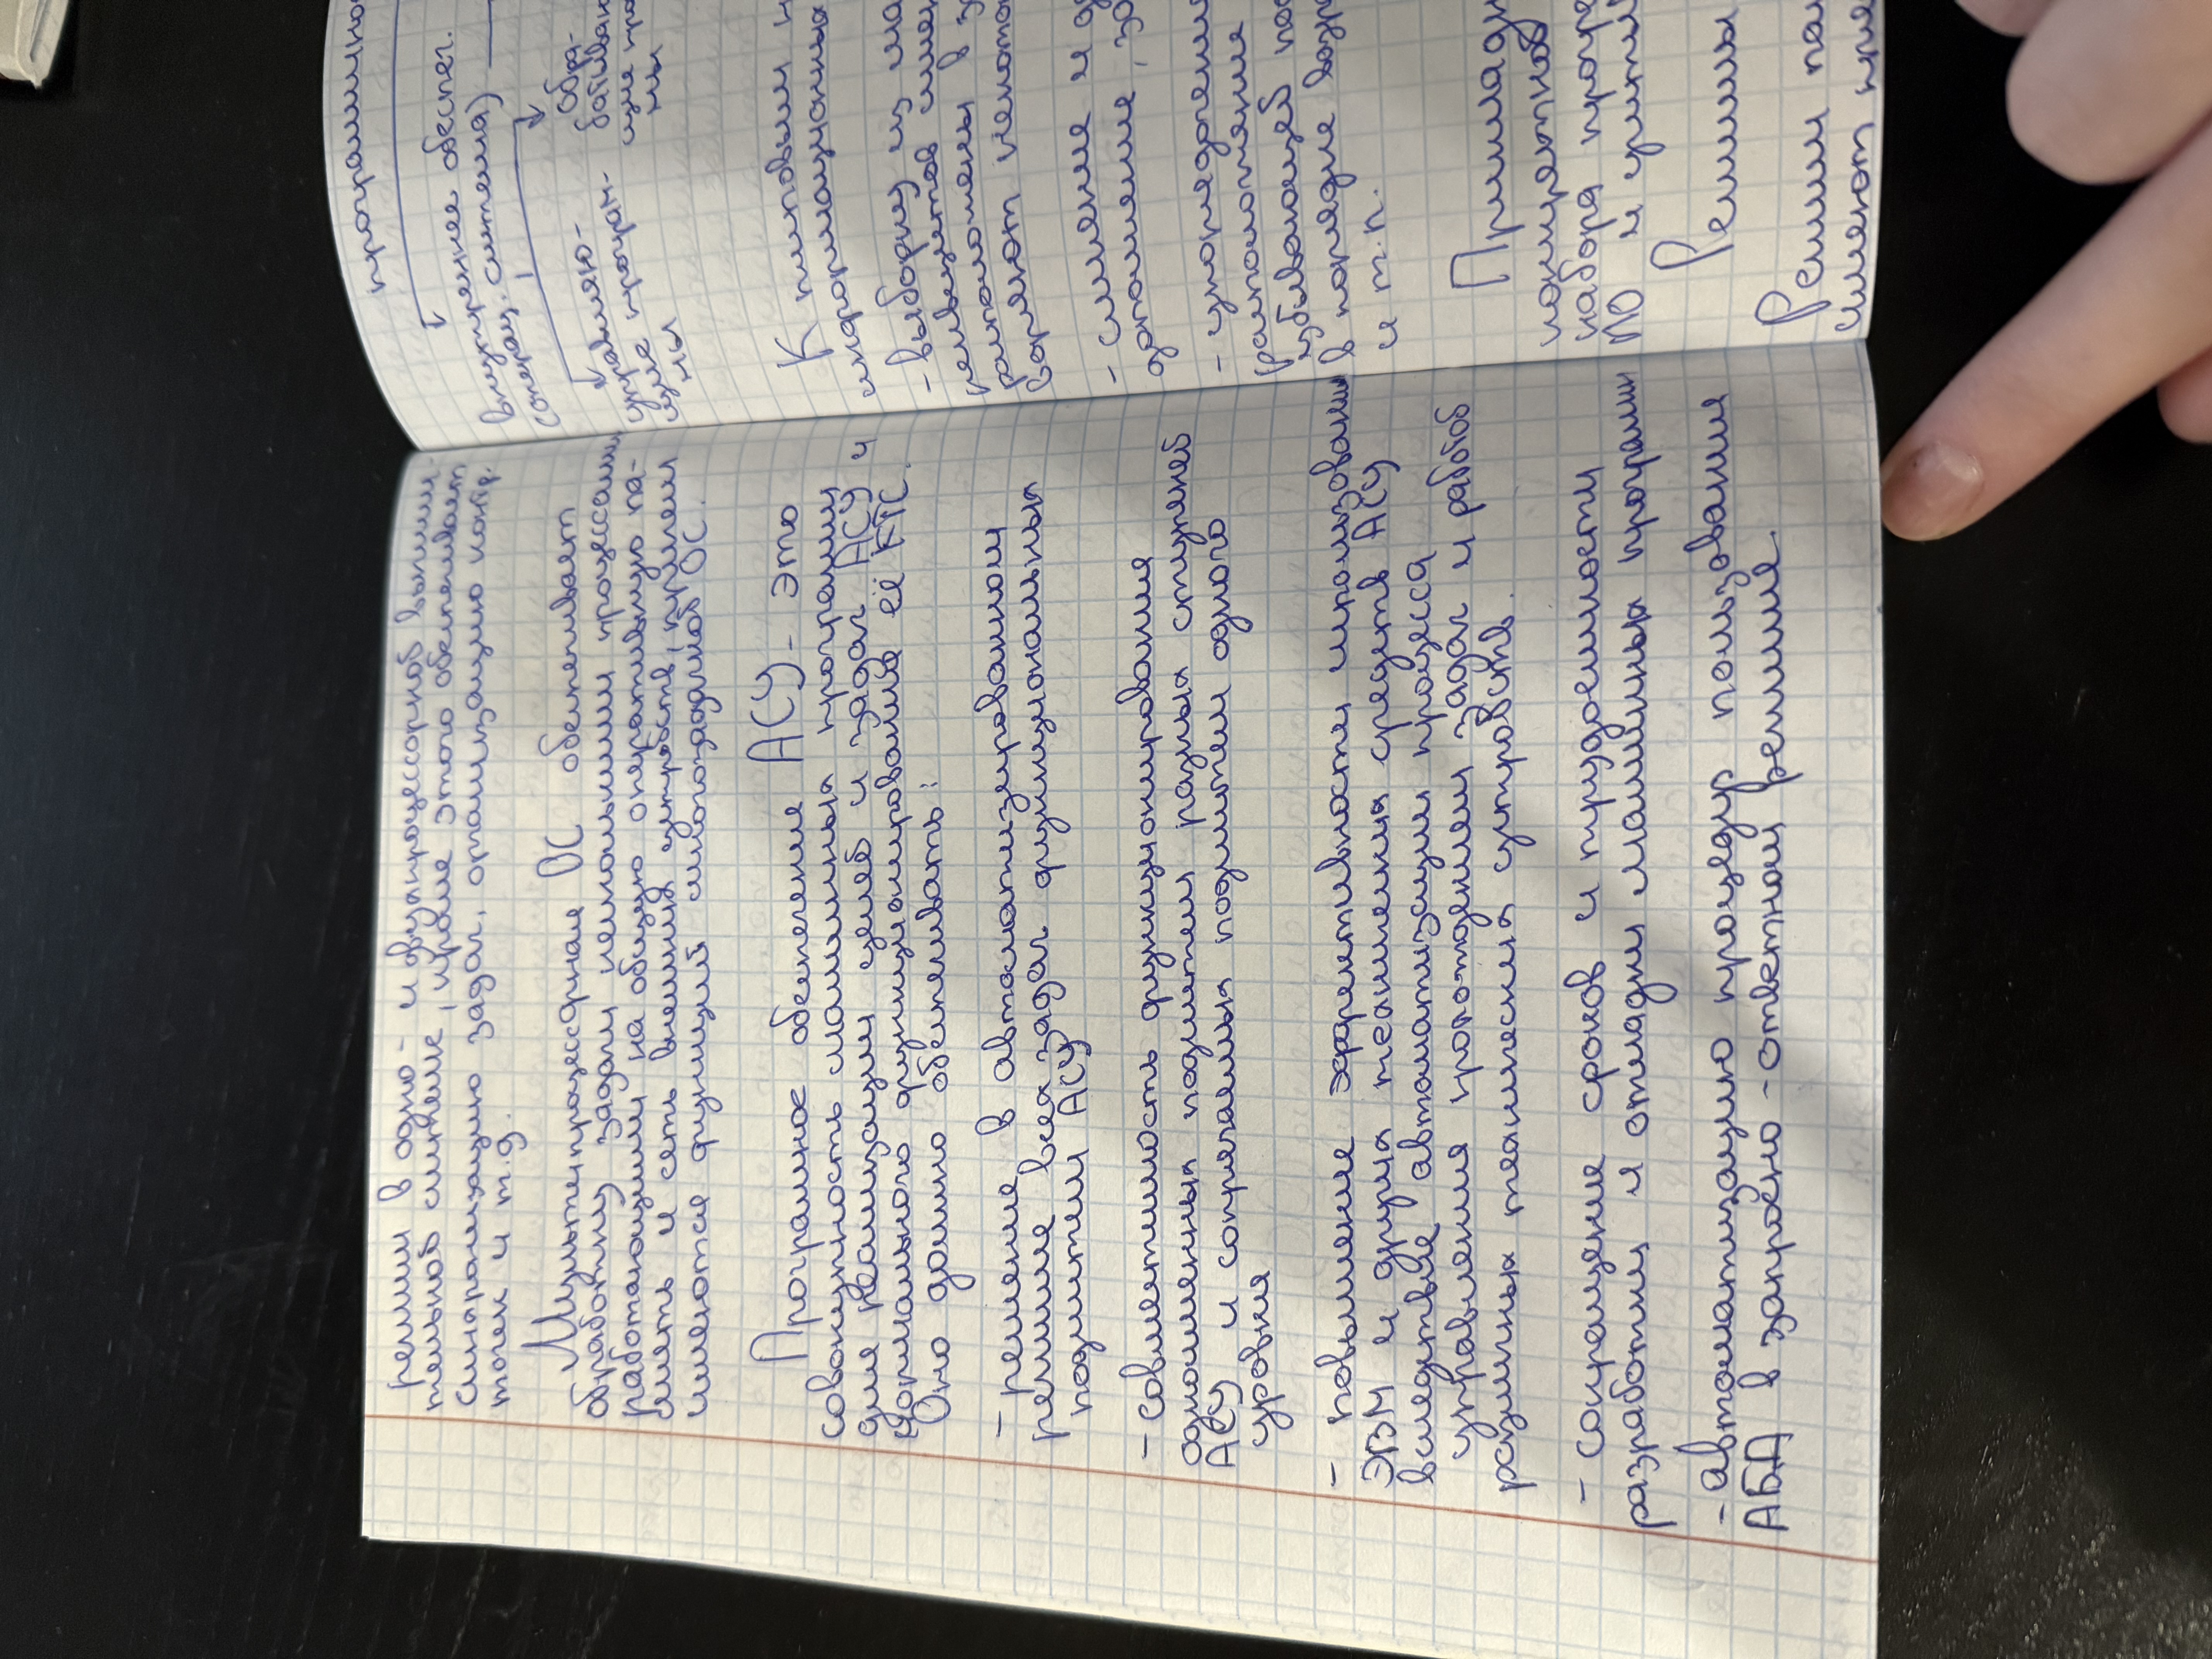 режим в одно- и двухпроцессорной вычисли-
тельной системе, кроме этого обеспечивает
синхронизацию задач, организацию контр.
точек и т.д.
Мультипроцессорная ОС обеспечивает
обработку задач несколькими процессами,
работающими на общую оперативную па-
мять и сеть внешних устройств, причем
имеются функций однозадачной ОС.
Програмное обеспечение АСУ - это
совокупность машинных программ
для реализации целей и задач АСУ и
нормального функционирование её КТС.
Оно должно обеспечивать:
- решение в автоматизированном
режиме всех задач функциональных
подсистем АСУ
- совместимость функционирования
одноименных подсистем разных ступеней
АСУ и сопрягаемых подсистем одного
уровня
- повышение эффективности использован
ЭВМ и других технических средств АСУ
вследствие автоматизации процесса
управления прохождением задач и работой
различных технических устройств.
- сокращение сроков и трудоемкости
разработки и отладки машинных программ
- автоматизацию процедур пользования
АБД в запросно-ответном режиме.
программно
внутреннее обеспеч.
(операц. система)
управляю-
щие програм-
мы
обра-
батываю
щие про
мы
К типовым
информационных
- выборку из ма
расположены в
- слияние и
- упорядочени
расположение
убывающей
в порядке возр
и т.п.
конкретной
набора програ
ПО и
Режимы
Режим